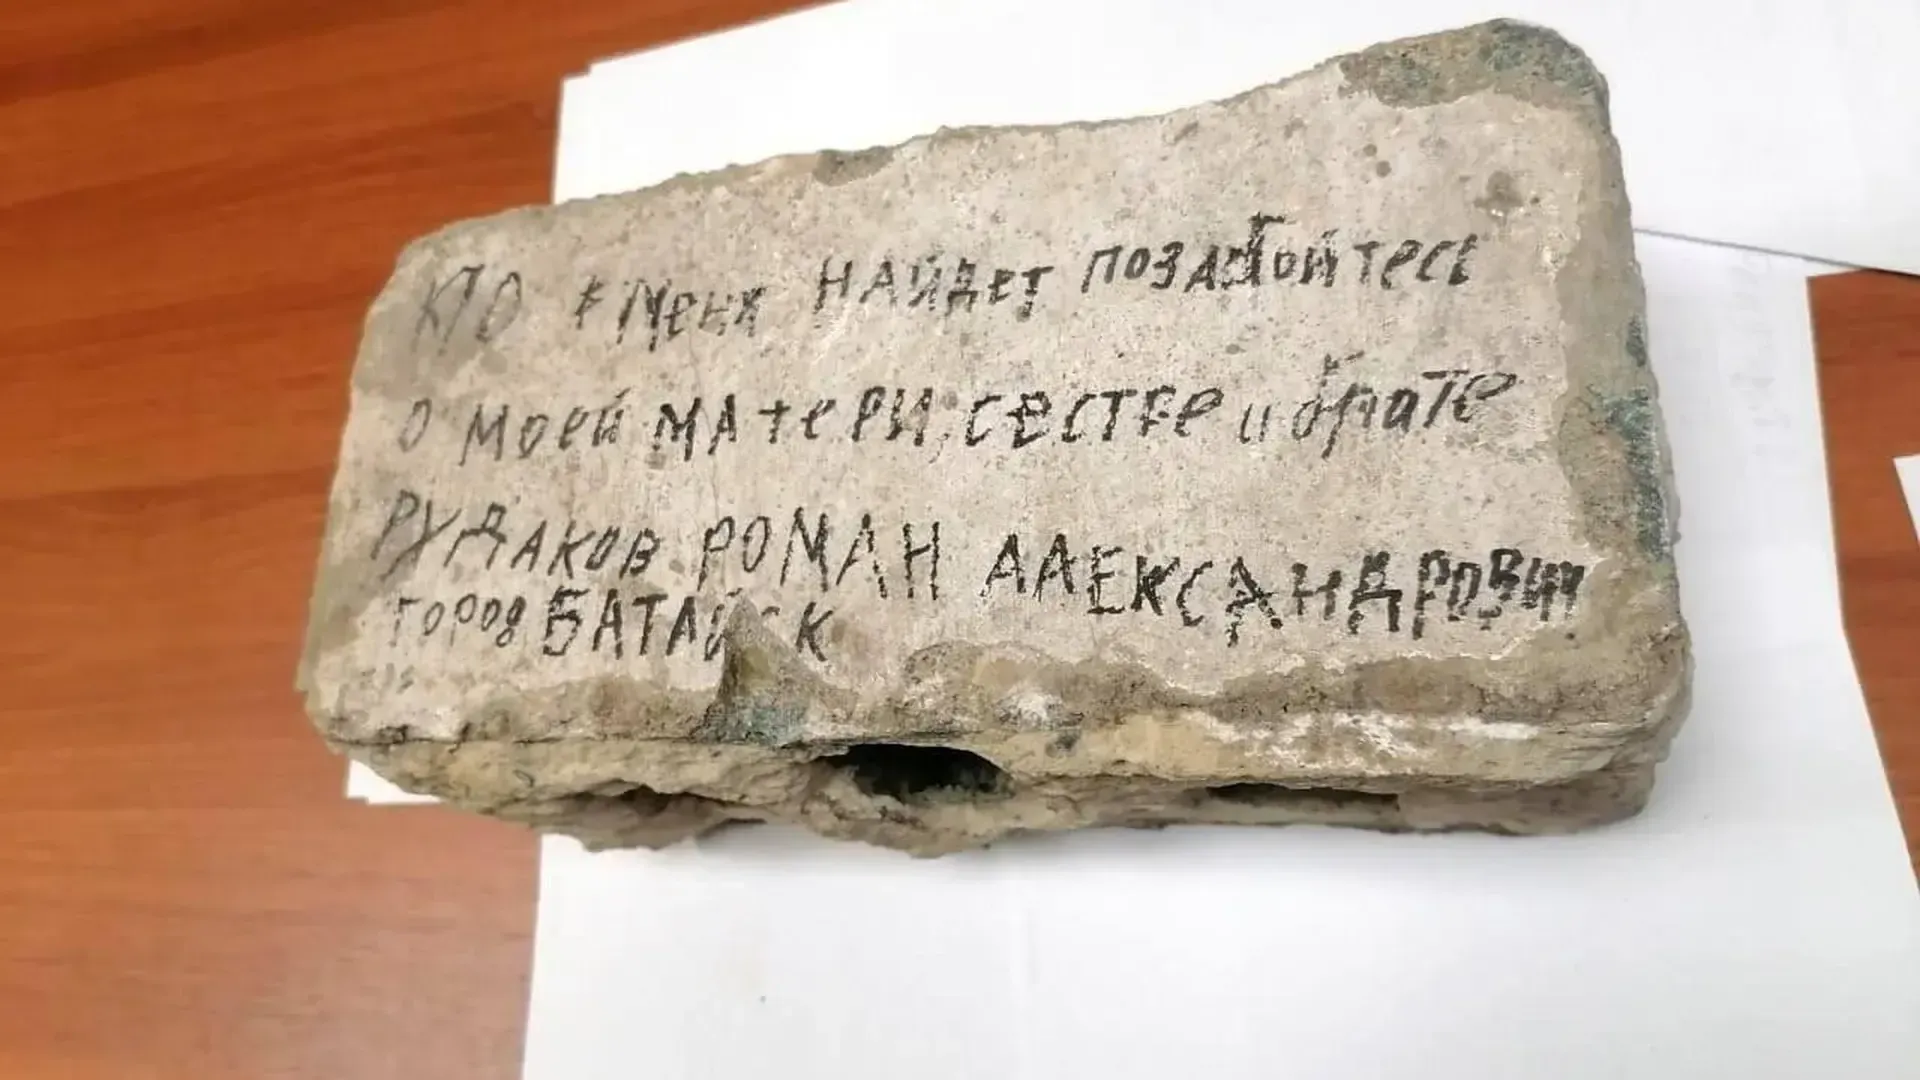 КТО Меня НАЙДЕТ ПОЗАБОТЙТЕСЬ
О МОЕЙ МАТЕРИ, СЕСТРЕ и брате
РУДАКОВ РОМАН АЛЕКСАНДРОВИЧ
город БАТАЙСК